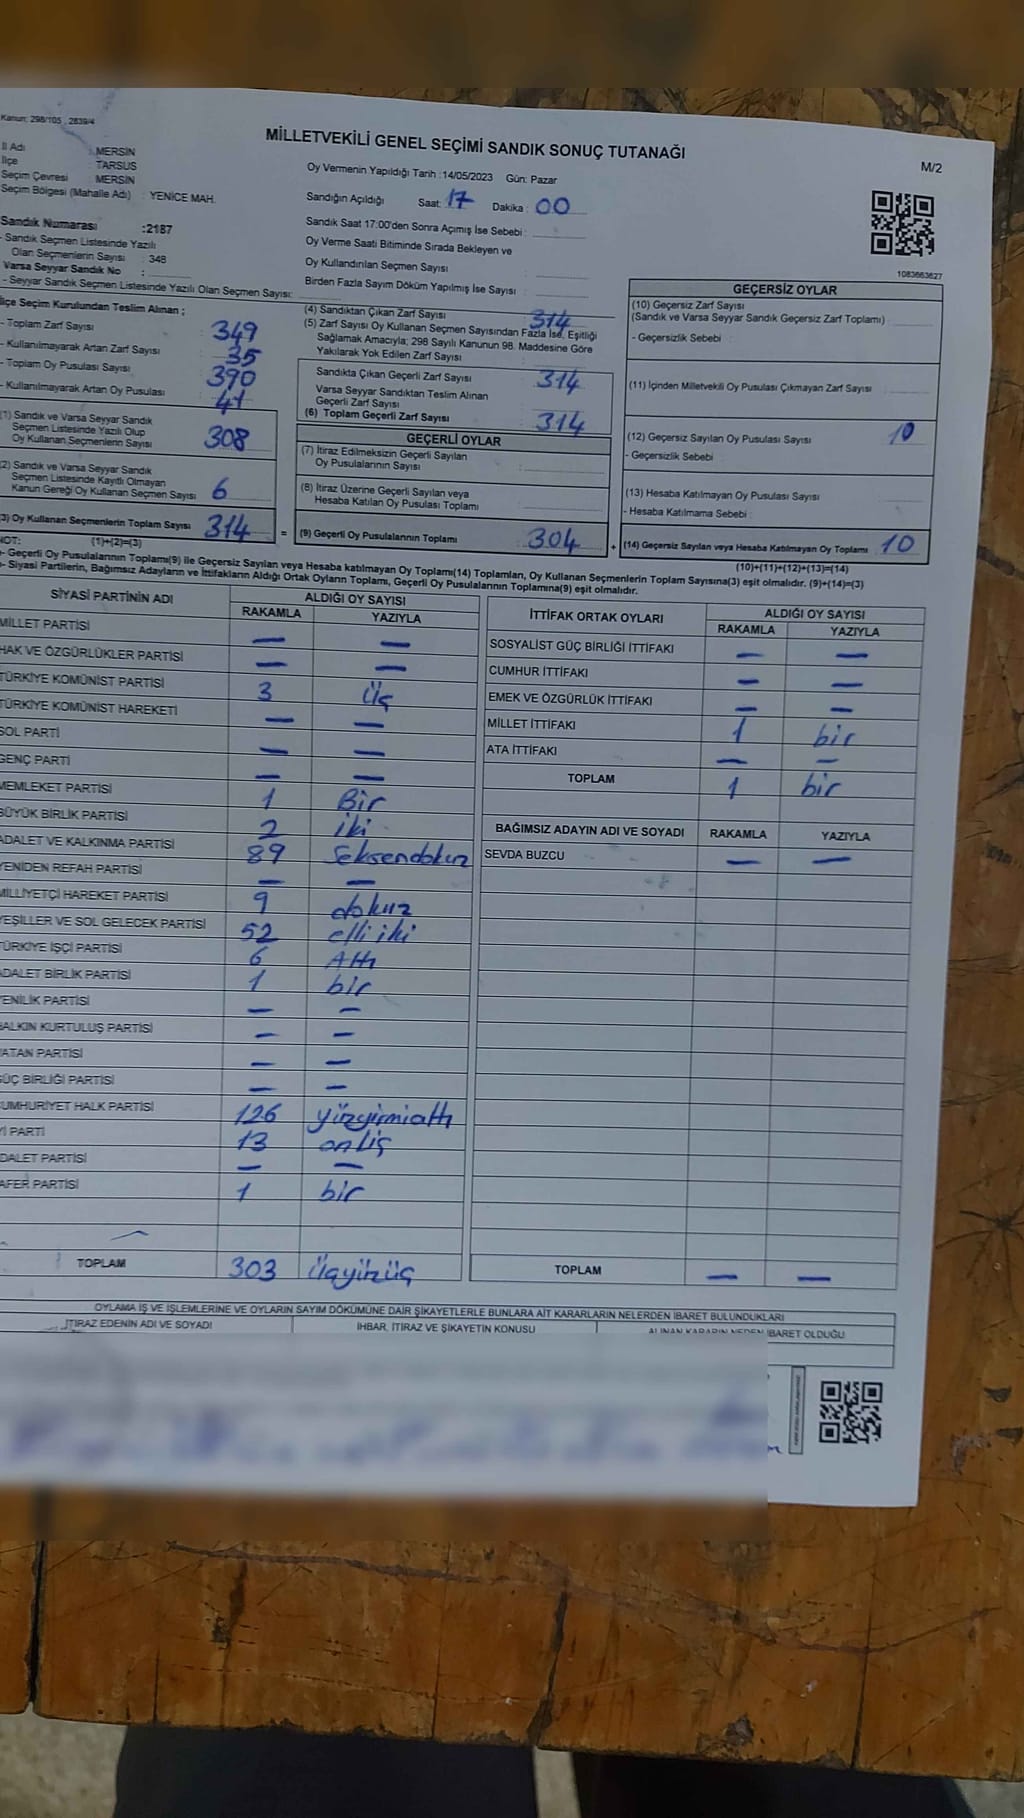 Kanun: 298/105 , 2839/4
MİLLETVEKİLİ GENEL SEÇİMİ SANDIK SONUÇ TUTANAĞI
M/2
İl Adı : MERSİN
İlçe : TARSUS
Seçim Çevresi : MERSİN
Seçim Bölgesi (Mahalle Adı) : YENİCE MAH.
Oy Vermenin Yapıldığı Tarih :14/05/2023 Gün: Pazar
Sandığın Açıldığı Saat: 17 Dakika : 00
Sandık Saat 17:00'den Sonra Açımış İse Sebebi :
Oy Verme Saati Bitiminde Sırada Bekleyen ve
Oy Kullandırılan Seçmen Sayısı :
Birden Fazla Sayım Döküm Yapılmış İse Sayısı :
Sandık Numarası :2187
- Sandık Seçmen Listesinde Yazılı
Olan Seçmenlerin Sayısı : 348
Varsa Seyyar Sandık No :
- Seyyar Sandık Seçmen Listesinde Yazılı Olan Seçmen Sayısı:
İlçe Seçim Kurulundan Teslim Alınan ;
- Toplam Zarf Sayısı : 349
- Kullanılmayarak Artan Zarf Sayısı : 35
- Toplam Oy Pusulası Sayısı : 390
- Kullanılmayarak Artan Oy Pusulası : 41
(1) Sandık ve Varsa Seyyar Sandık
Seçmen Listesinde Yazılı Olup
Oy Kullanan Seçmenlerin Sayısı 308
(2) Sandık ve Varsa Seyyar Sandık
Seçmen Listesinde Kayıtlı Olmayan
Kanun Gereği Oy Kullanan Seçmen Sayısı 6
(3) Oy Kullanan Seçmenlerin Toplam Sayısı 314 =
(1)+(2)=(3)
(4) Sandıktan Çıkan Zarf Sayısı : 314
(5) Zarf Sayısı Oy Kullanan Seçmen Sayısından Fazla İse, Eşitliği
Sağlamak Amacıyla; 298 Sayılı Kanunun 98. Maddesine Göre
Yakılarak Yok Edilen Zarf Sayısı :
Sandıkta Çıkan Geçerli Zarf Sayısı : 314
Varsa Seyyar Sandıktan Teslim Alınan
Geçerli Zarf Sayısı :
(6) Toplam Geçerli Zarf Sayısı : 314
GEÇERLİ OYLAR
(7) İtiraz Edilmeksizin Geçerli Sayılan
Oy Pusulalarının Sayısı :
(8) İtiraz Üzerine Geçerli Sayılan veya
Hesaba Katılan Oy Pusulası Toplamı :
(9) Geçerli Oy Pusulalarının Toplamı : 304 +
1083663627
GEÇERSİZ OYLAR
(10) Geçersiz Zarf Sayısı
(Sandık ve Varsa Seyyar Sandık Geçersiz Zarf Toplamı) :
- Geçersizlik Sebebi :
(11) İçinden Milletvekili Oy Pusulası Çıkmayan Zarf Sayısı :
(12) Geçersiz Sayılan Oy Pusulası Sayısı : 10
- Geçersizlik Sebebi :
(13) Hesaba Katılmayan Oy Pusulası Sayısı :
- Hesaba Katılmama Sebebi :
(14) Geçersiz Sayılan veya Hesaba Katılmayan Oy Toplamı : 10
(10)+(11)+(12)+(13)=(14)
NOT:
- Geçerli Oy Pusulalarının Toplamı(9) ile Geçersiz Sayılan veya Hesaba katılmayan Oy Toplamı(14) Toplamları, Oy Kullanan Seçmenlerin Toplam Sayısına(3) eşit olmalıdır. (9)+(14)=(3)
- Siyasi Partilerin, Bağımsız Adayların ve İttifakların Aldığı Ortak Oyların Toplamı, Geçerli Oy Pusulalarının Toplamına(9) eşit olmalıdır.
SİYASİ PARTİNİN ADI ALDIĞI OY SAYISI
RAKAMLA YAZIYLA
MİLLET PARTİSİ — —
HAK VE ÖZGÜRLÜKLER PARTİSİ — —
TÜRKİYE KOMÜNİST PARTİSİ 3 Üç
TÜRKİYE KOMÜNİST HAREKETİ — —
SOL PARTİ — —
GENÇ PARTİ — —
MEMLEKET PARTİSİ 1 Bir
BÜYÜK BİRLİK PARTİSİ 2 iki
ADALET VE KALKINMA PARTİSİ 89 Seksendokuz
YENİDEN REFAH PARTİSİ — —
MİLLİYETÇİ HAREKET PARTİSİ 9 dokuz
YEŞİLLER VE SOL GELECEK PARTİSİ 52 elli iki
TÜRKİYE İŞÇİ PARTİSİ 6 Altı
ADALET BİRLİK PARTİSİ 1 bir
YENİLİK PARTİSİ — —
HALKIN KURTULUŞ PARTİSİ — —
VATAN PARTİSİ — —
GÜÇ BİRLİĞİ PARTİSİ — —
CUMHURİYET HALK PARTİSİ 126 yüzyirmialtı
İYİ PARTİ 13 onüç
ADALET PARTİSİ — —
ZAFER PARTİSİ 1 bir
TOPLAM 303 Üçyüzüç
İTTİFAK ORTAK OYLARI ALDIĞI OY SAYISI
RAKAMLA YAZIYLA
SOSYALİST GÜÇ BİRLİĞİ İTTİFAKI — —
CUMHUR İTTİFAKI — —
EMEK VE ÖZGÜRLÜK İTTİFAKI — —
MİLLET İTTİFAKI 1 bir
ATA İTTİFAKI — —
TOPLAM 1 bir
BAĞIMSIZ ADAYIN ADI VE SOYADI RAKAMLA YAZIYLA
SEVDA BUZCU — —
TOPLAM — —
OYLAMA İŞ VE İŞLEMLERİNE VE OYLARIN SAYIM DÖKÜMÜNE DAİR ŞİKAYETLERLE BUNLARA AİT KARARLARIN NELERDEN İBARET BULUNDUKLARI
İTİRAZ EDENİN ADI VE SOYADI İHBAR, İTİRAZ VE ŞİKAYETİN KONUSU ALINAN KARARIN NEDEN İBARET OLDUĞU